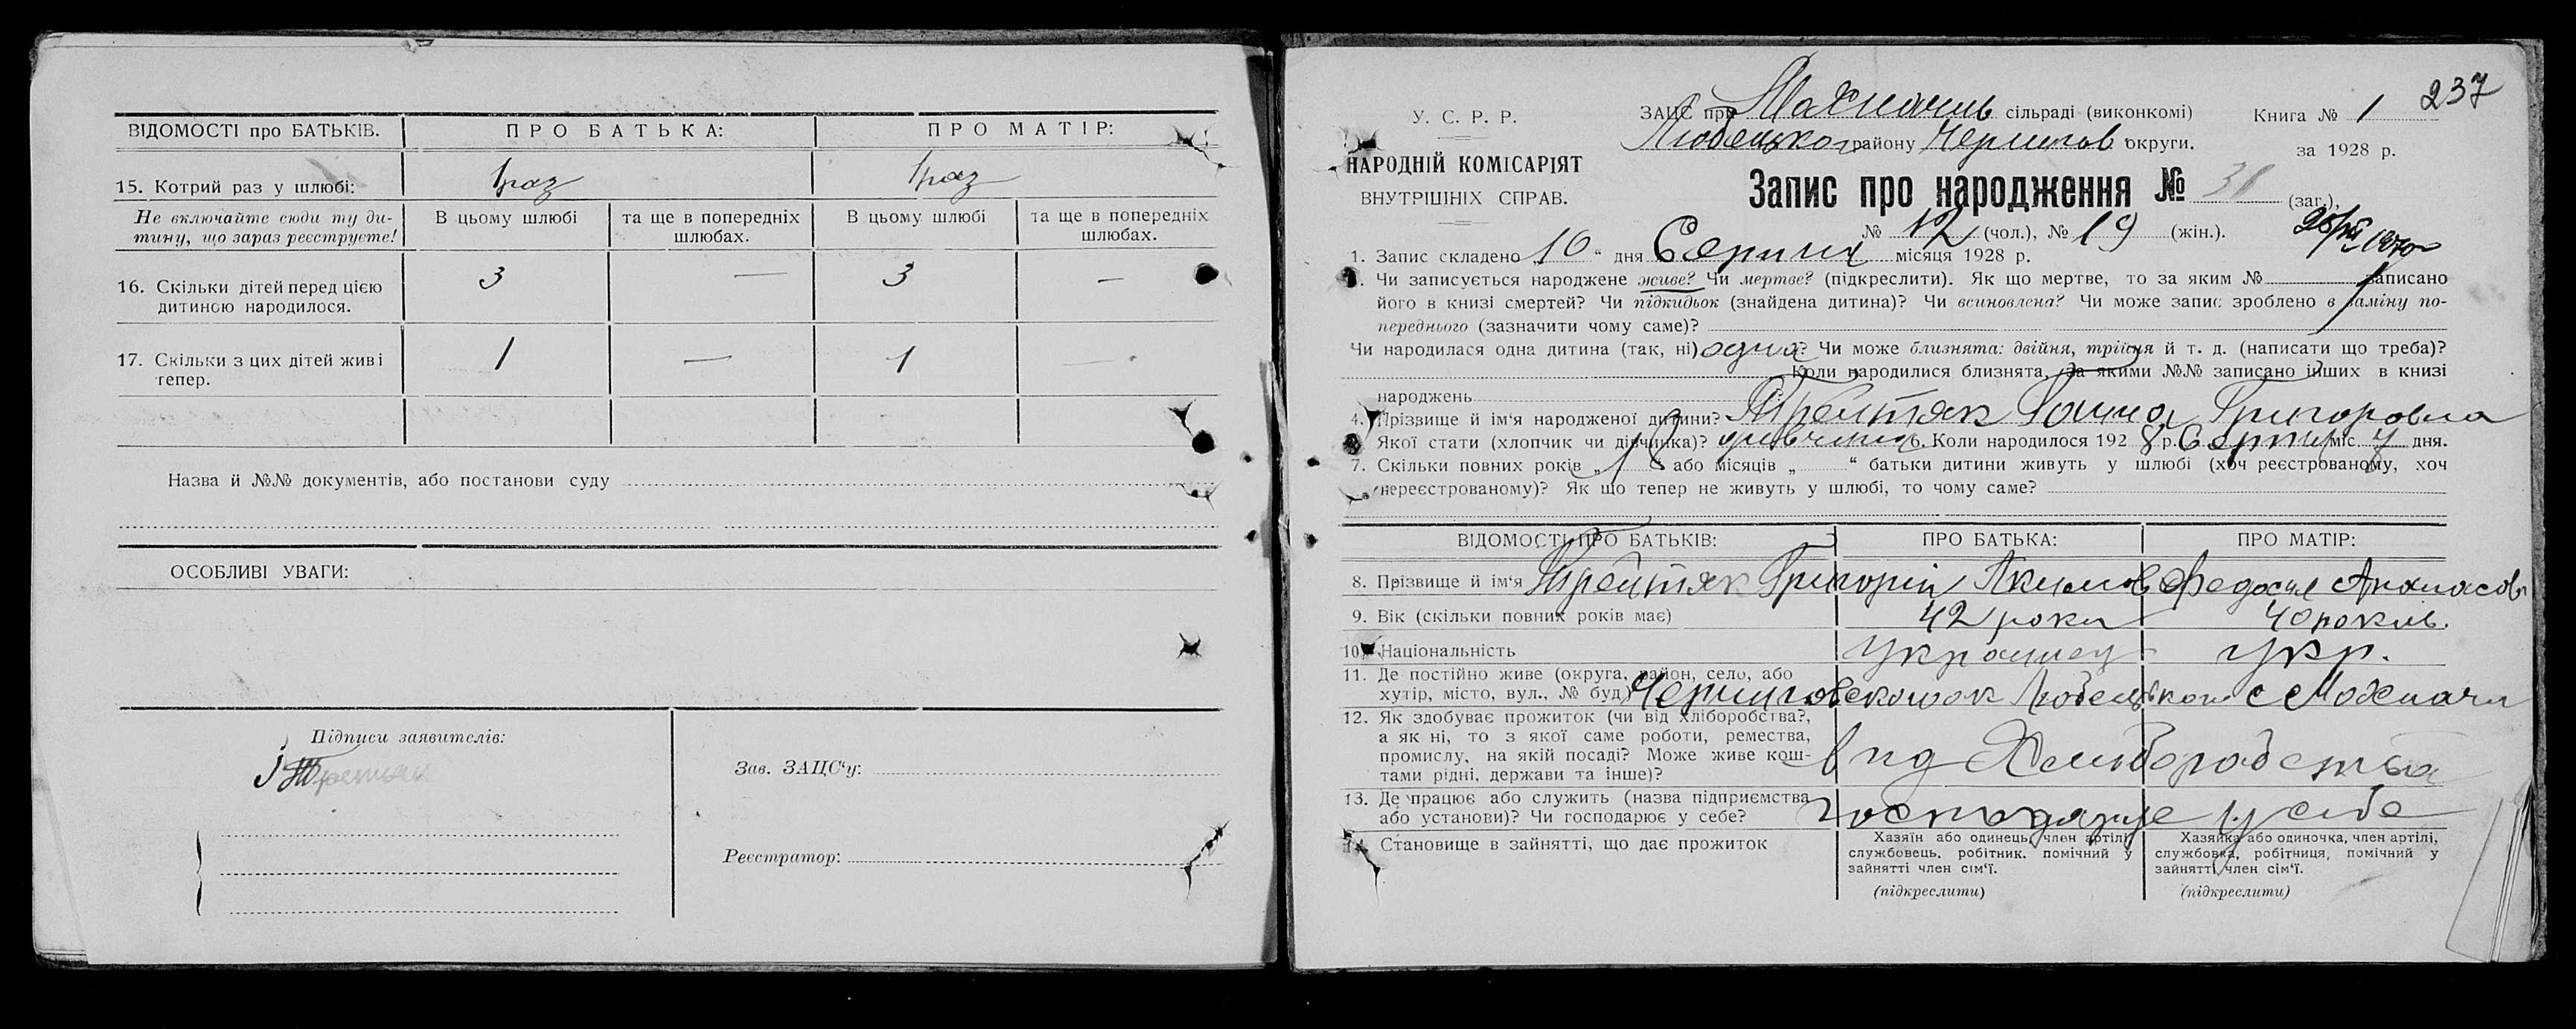 ВІДОМОСТІ про БАТЬКІВ. ПРО БАТЬКА: ПРО МАТІР:
15. Котрий раз у шлюбі: 1 раз 1 раз
Не включайте сюди ту ди-
тину, що зараз реєструєте!
В цьому шлюбі
та ще в попередніх
шлюбах.
В цьому шлюбі
та ще в попередніх
шлюбах.
16. Скільки дітей перед цією
дитиною народилося.
3 — 3 —
17. Скільки з цих дітей живі
тепер.
1 — 1 —
Назва й №№ документів, або постанови суду
ОСОБЛИВІ УВАГИ:
Підписи заявителів:
Третяк
Зав. ЗАЦС‘у:
Реєстратор:
237
У. С. Р. Р.
НАРОДНІЙ КОМІСАРІЯТ
ВНУТРІШНІХ СПРАВ.
ЗАЦС при сільраді (виконкомі)
Любецького району Чернигов округи.
Книга № 1
за 1928 р.
Запис про народження № 31 (заг.),
№ 12 (чол.), № 19 (жін.).
1. Запис складено „10“ дня Серпня місяця 1928 р.
Чи записується народжене живе? Чи мертве? (підкреслити). Як що мертве, то за яким № записано
його в книзі смертей? Чи підкидьок (знайдена дитина)? Чи всиновлена? Чи може запис зроблено в заміну по-
переднього (зазначити чому саме)?
Чи народилася одна дитина (так, ні) одна? Чи може близнята: двійня, трійня й т. д. (написати що треба)?
Коли народилися близнята, за якими №№ записано інших в книзі
народжень
4. Прізвище й ім‘я народженої дитини? Ганна Григоровна
Якої стати (хлопчик чи дівчинка)? дивчина 6. Коли народилося 1928 р. Серпня міс. 7 дня.
7. Скільки повних років „18“ або місяців „ “ батьки дитини живуть у шлюбі (хоч реєстрованому, хоч
нереєстрованому)? Як що тепер не живуть у шлюбі, то чому саме?
ВІДОМОСТІ ПРО БАТЬКІВ: ПРО БАТЬКА: ПРО МАТІР:
8. Прізвище й ім‘я Григорій Акимов Федосия
9. Вік (скільки повних років має) 42 роки 40 рокив.
10. Національність Украинец укр.
11. Де постійно живе (округа, район, село, або
хутір, місто, вул., № буд.)
Любецького с Махначи
12. Як здобуває прожиток (чи від хліборобства?,
а як ні, то з якої саме роботи, ремества,
промислу, на якій посаді? Може живе кош-
тами рідні, держави та інше)?
вид Хлиборобства
13. Де працює або служить (назва підприємства
або установи)? Чи господарює у себе?
господарює у себе
14. Становище в зайнятті, що дає прожиток
Хазяїн або одинець, член артілі,
службовець, робітник. помічний у
зайнятті член сім‘ї.
(підкреслити)
Хазяйка або одиночка, член артілі,
службовка, робітниця, помічний у
зайнятті член сім‘ї.
(підкреслити)